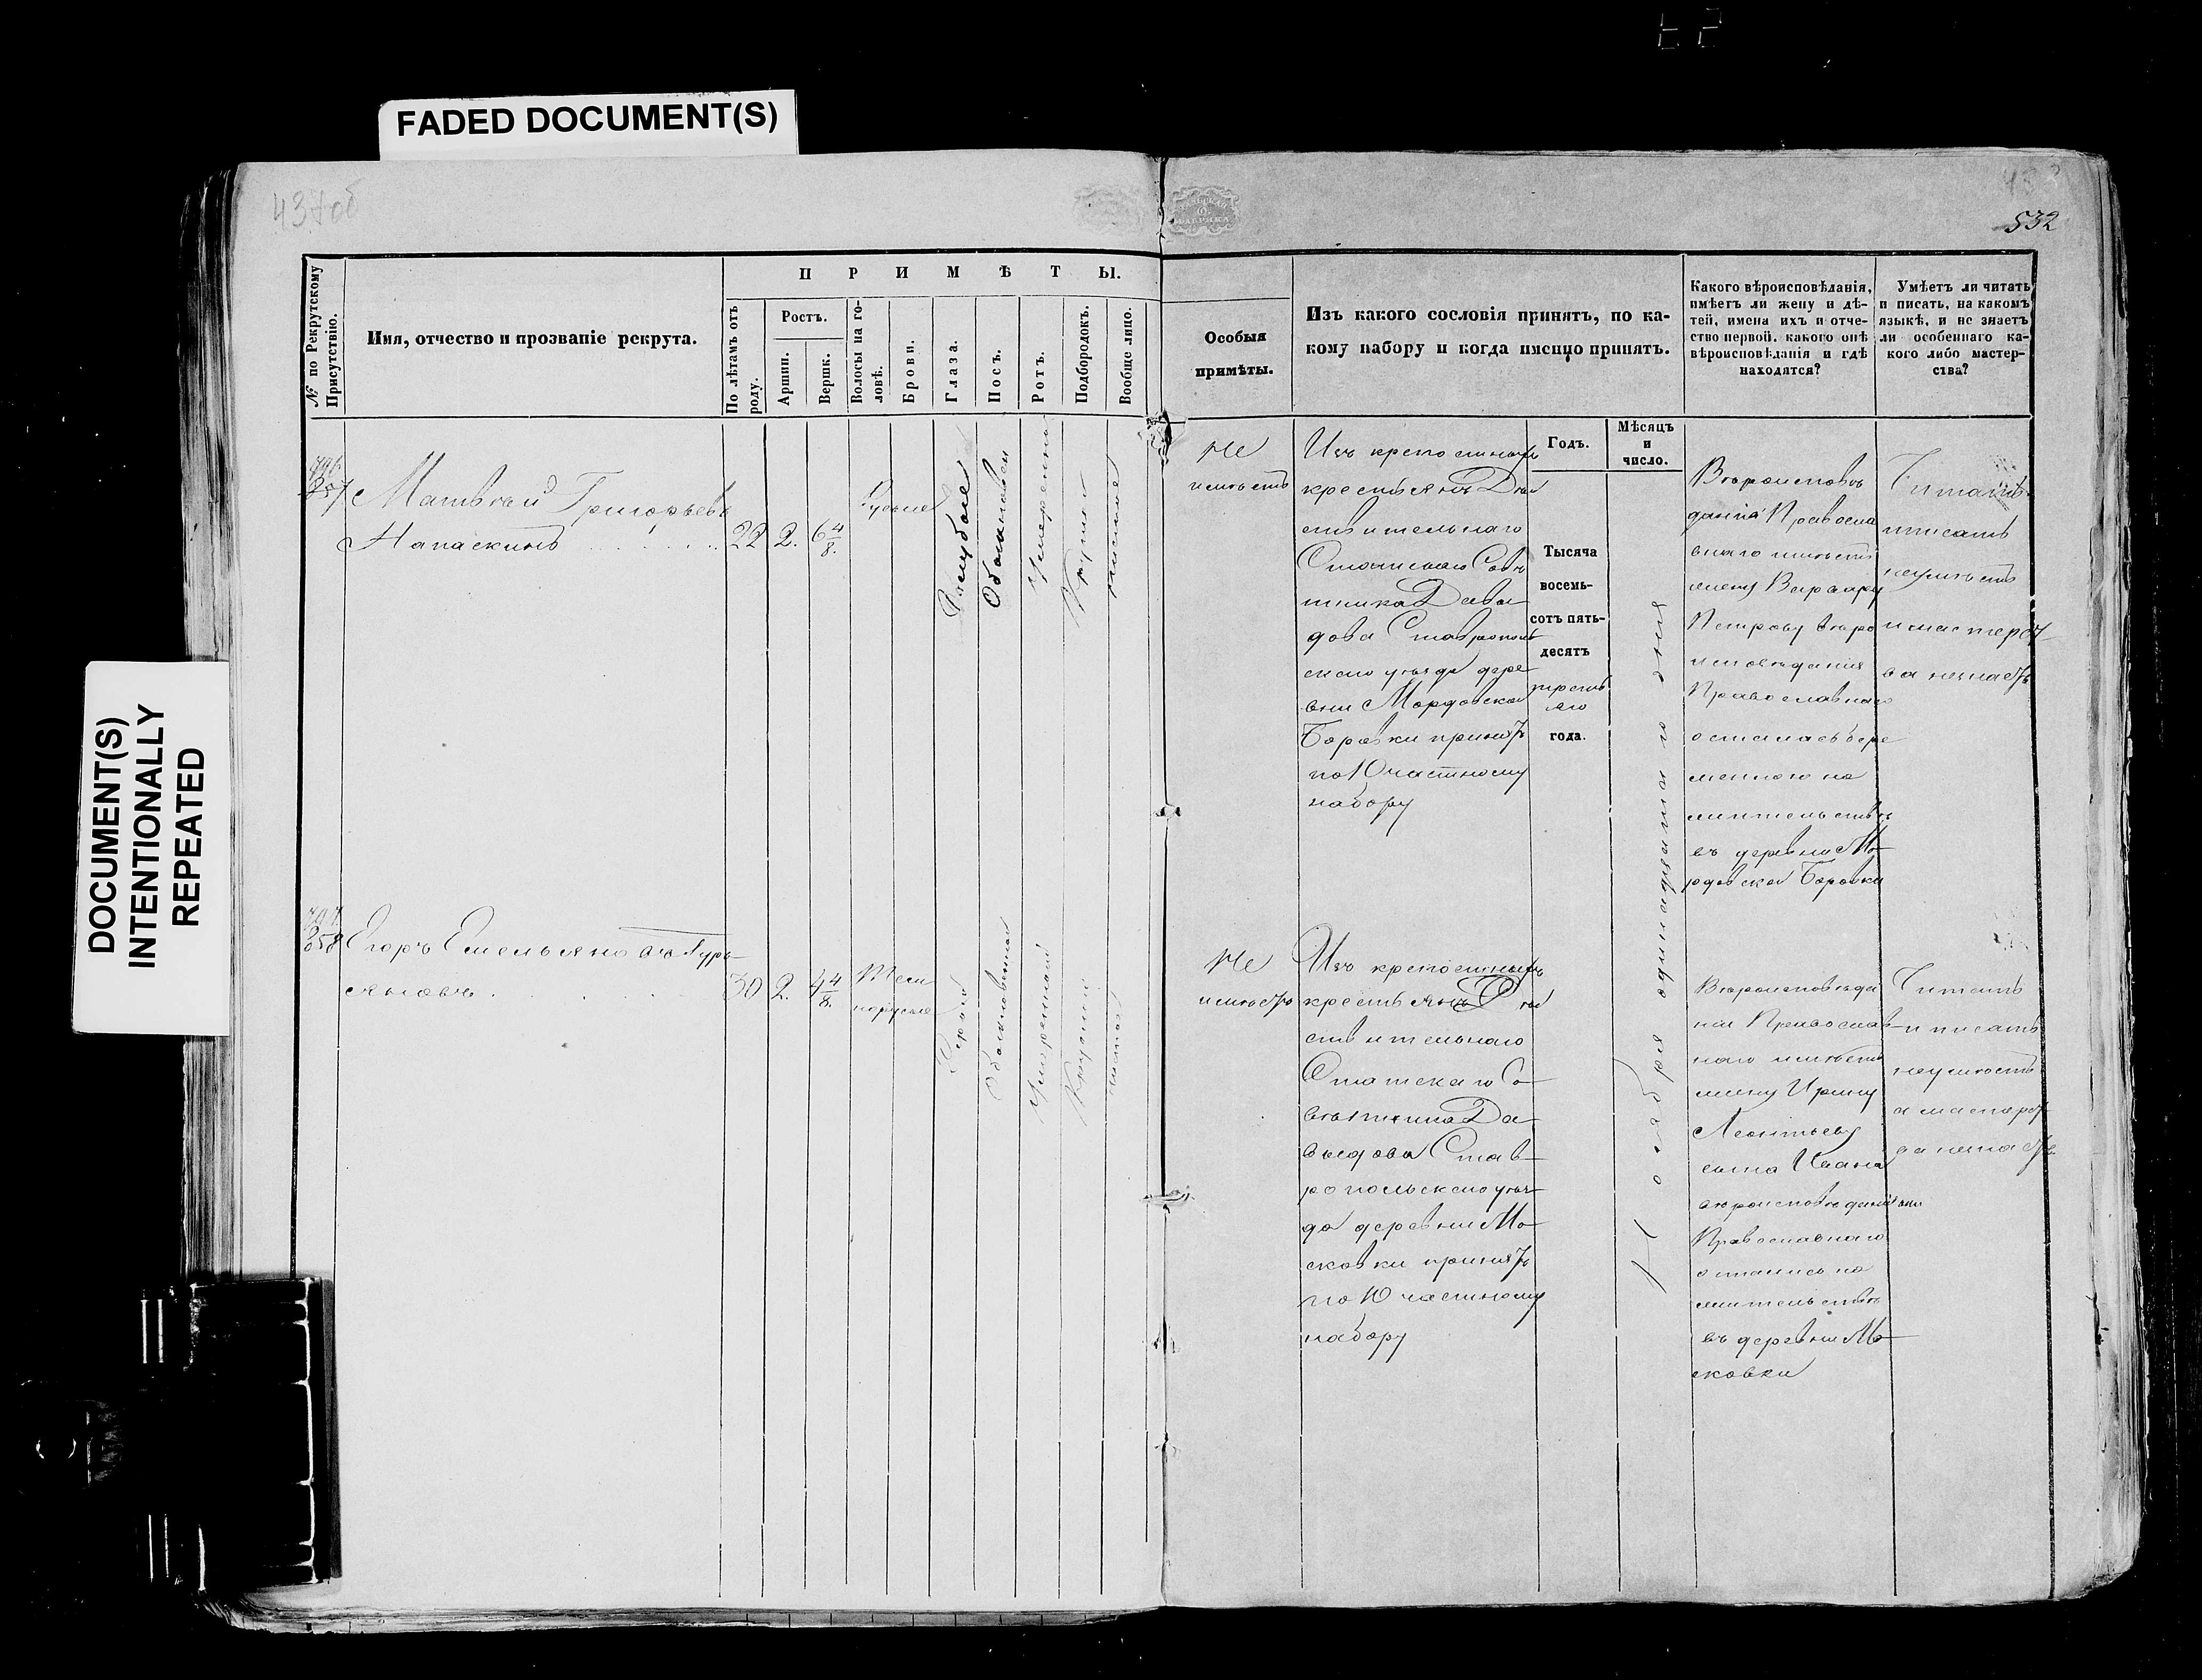 FADED DOCUMENT(S)
DOCUMENT(S)
INTENTIONALLY
REPEATED
532
№ по Рекрутскому
Присутствію.
Имя, отчество и прозваніе рекрута.
ПРИМѢТЫ.
По лѣтамъ отъ
роду.
Ростъ.
Аршин.
Вершк.
Волосы на го-
ловѣ.
Брови.
Глаза.
Носъ.
Ротъ.
Подбородокъ.
Вообще лицо.
Особыя
примѣты.
Изъ какого сословія принятъ, по ка-
кому набору и когда именно принятъ.
Какого вѣроисповѣданія,
имѣетъ ли жену и дѣ-
тей, имена ихъ и отче-
ство первой, какого онѣ
вѣроисповѣданія и гдѣ
находятся?
Умѣетъ ли читать
и писать, на какомъ
языкѣ, и не знаетъ
ли особеннаго ка-
кого либо мастер-
ства?
Годъ.
Мѣсяцъ
и
число.
857
Матвѣй Григорьевъ
Напаскинъ
22
2.
6 4/8.
Русые
Голубые
Обыкновен
Умеренный
Круглый
чистое
Не
имѣетъ
Изъ крепостныхъ
крестьянъ Дѣй
ствительнаго
Статскаго Совѣ
тника Давы
дова Ставрополь
скаго уѣзда дере
вни Мордовской
Боровки принятъ
по 10 частному
набору
Тысяча
восемь-
сотъ пять-
десятъ
третья
яго
года.
Ноября одинадцатаго дня
Вѣроисповѣ
данія Правосла
внаго имѣетъ
жену Варвару
Петрову вѣро
исповѣданія
Православнаго
осталась бере
менною на
жительствѣ
въ деревни Мо
рдовской Боровки
Читать
и писать
неумѣетъ
и мастерст
ва незнаетъ
858
Егоръ Емельяновъ Гурь
яновъ
30
2.
4 4/8.
Тем
норусые
Серые
Обыкновенный
Умеренный
Круглый
чистое
Не
имѣетъ
Изъ крепостныхъ
крестьянъ Дѣй
ствительнаго
Статскаго Со
вѣтника Да
выдова Став
ропольскаго уѣз
да деревни Мо
сковки принятъ
по 10 частному
набору
Вѣроисповѣда
нія Православ
наго имѣетъ
жену Ирину
Леонтьеву
сына Ивана
вѣроисповѣданія они
Православнаго
остались на
жительствѣ
въ деревни Мо
сковки
Читать
и писать
неумѣетъ
а мастерст
ва незнаетъ